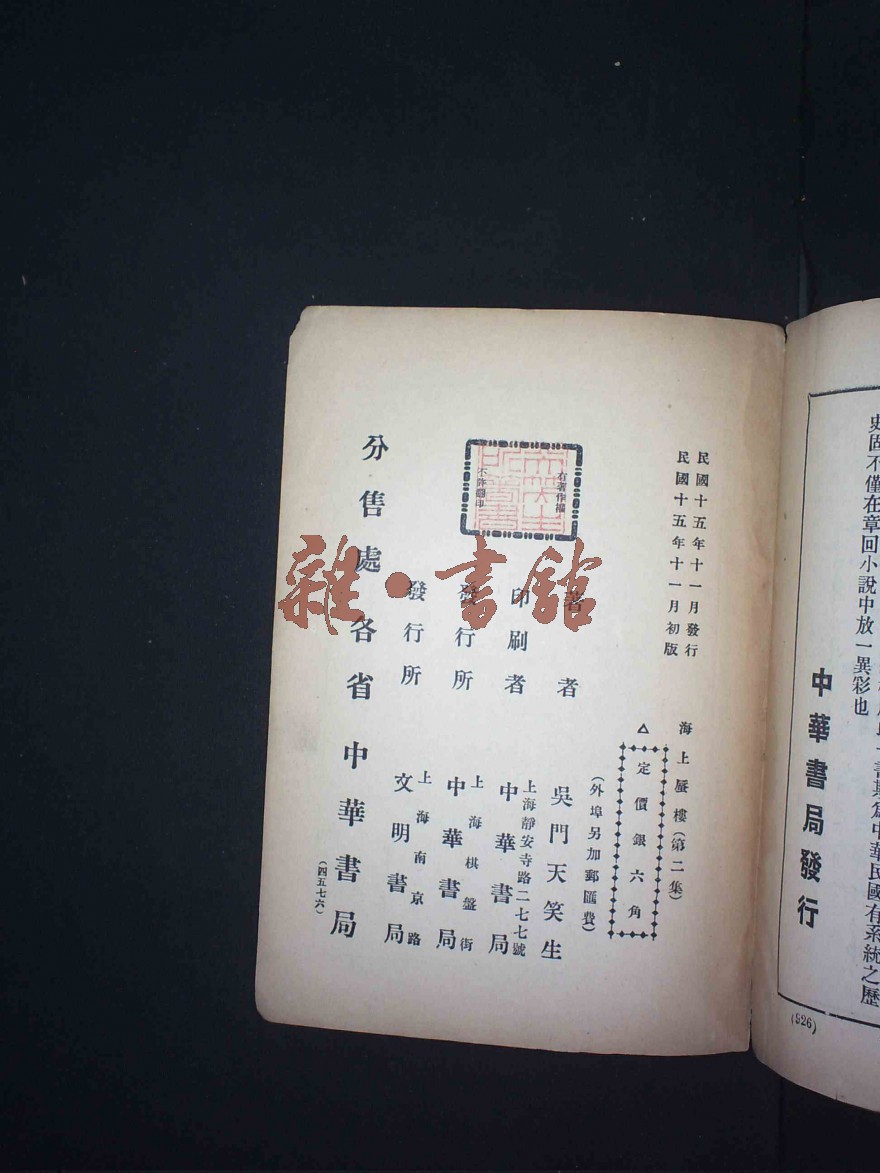 史固不僅在章回小說中放一異彩也
中華書局發行
(526)
民國十五年十一月發行
民國十五年十一月初版
海上蜃樓(第二集)
定價銀六角
(外埠另加郵匯費)
有著作權
不許翻印
著者 吳門天笑生
印刷者 上海靜安寺路二七七號 中華書局
發行所 上海棋盤街 中華書局
發行所 上海南京路 文明書局
分售處 各省 中華書局
(四五七六)
雜·書館